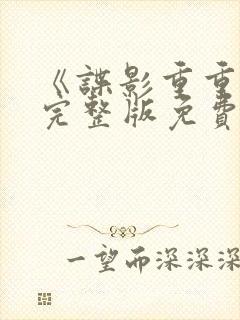 《諜影重重
完整版免費
一望而深深深